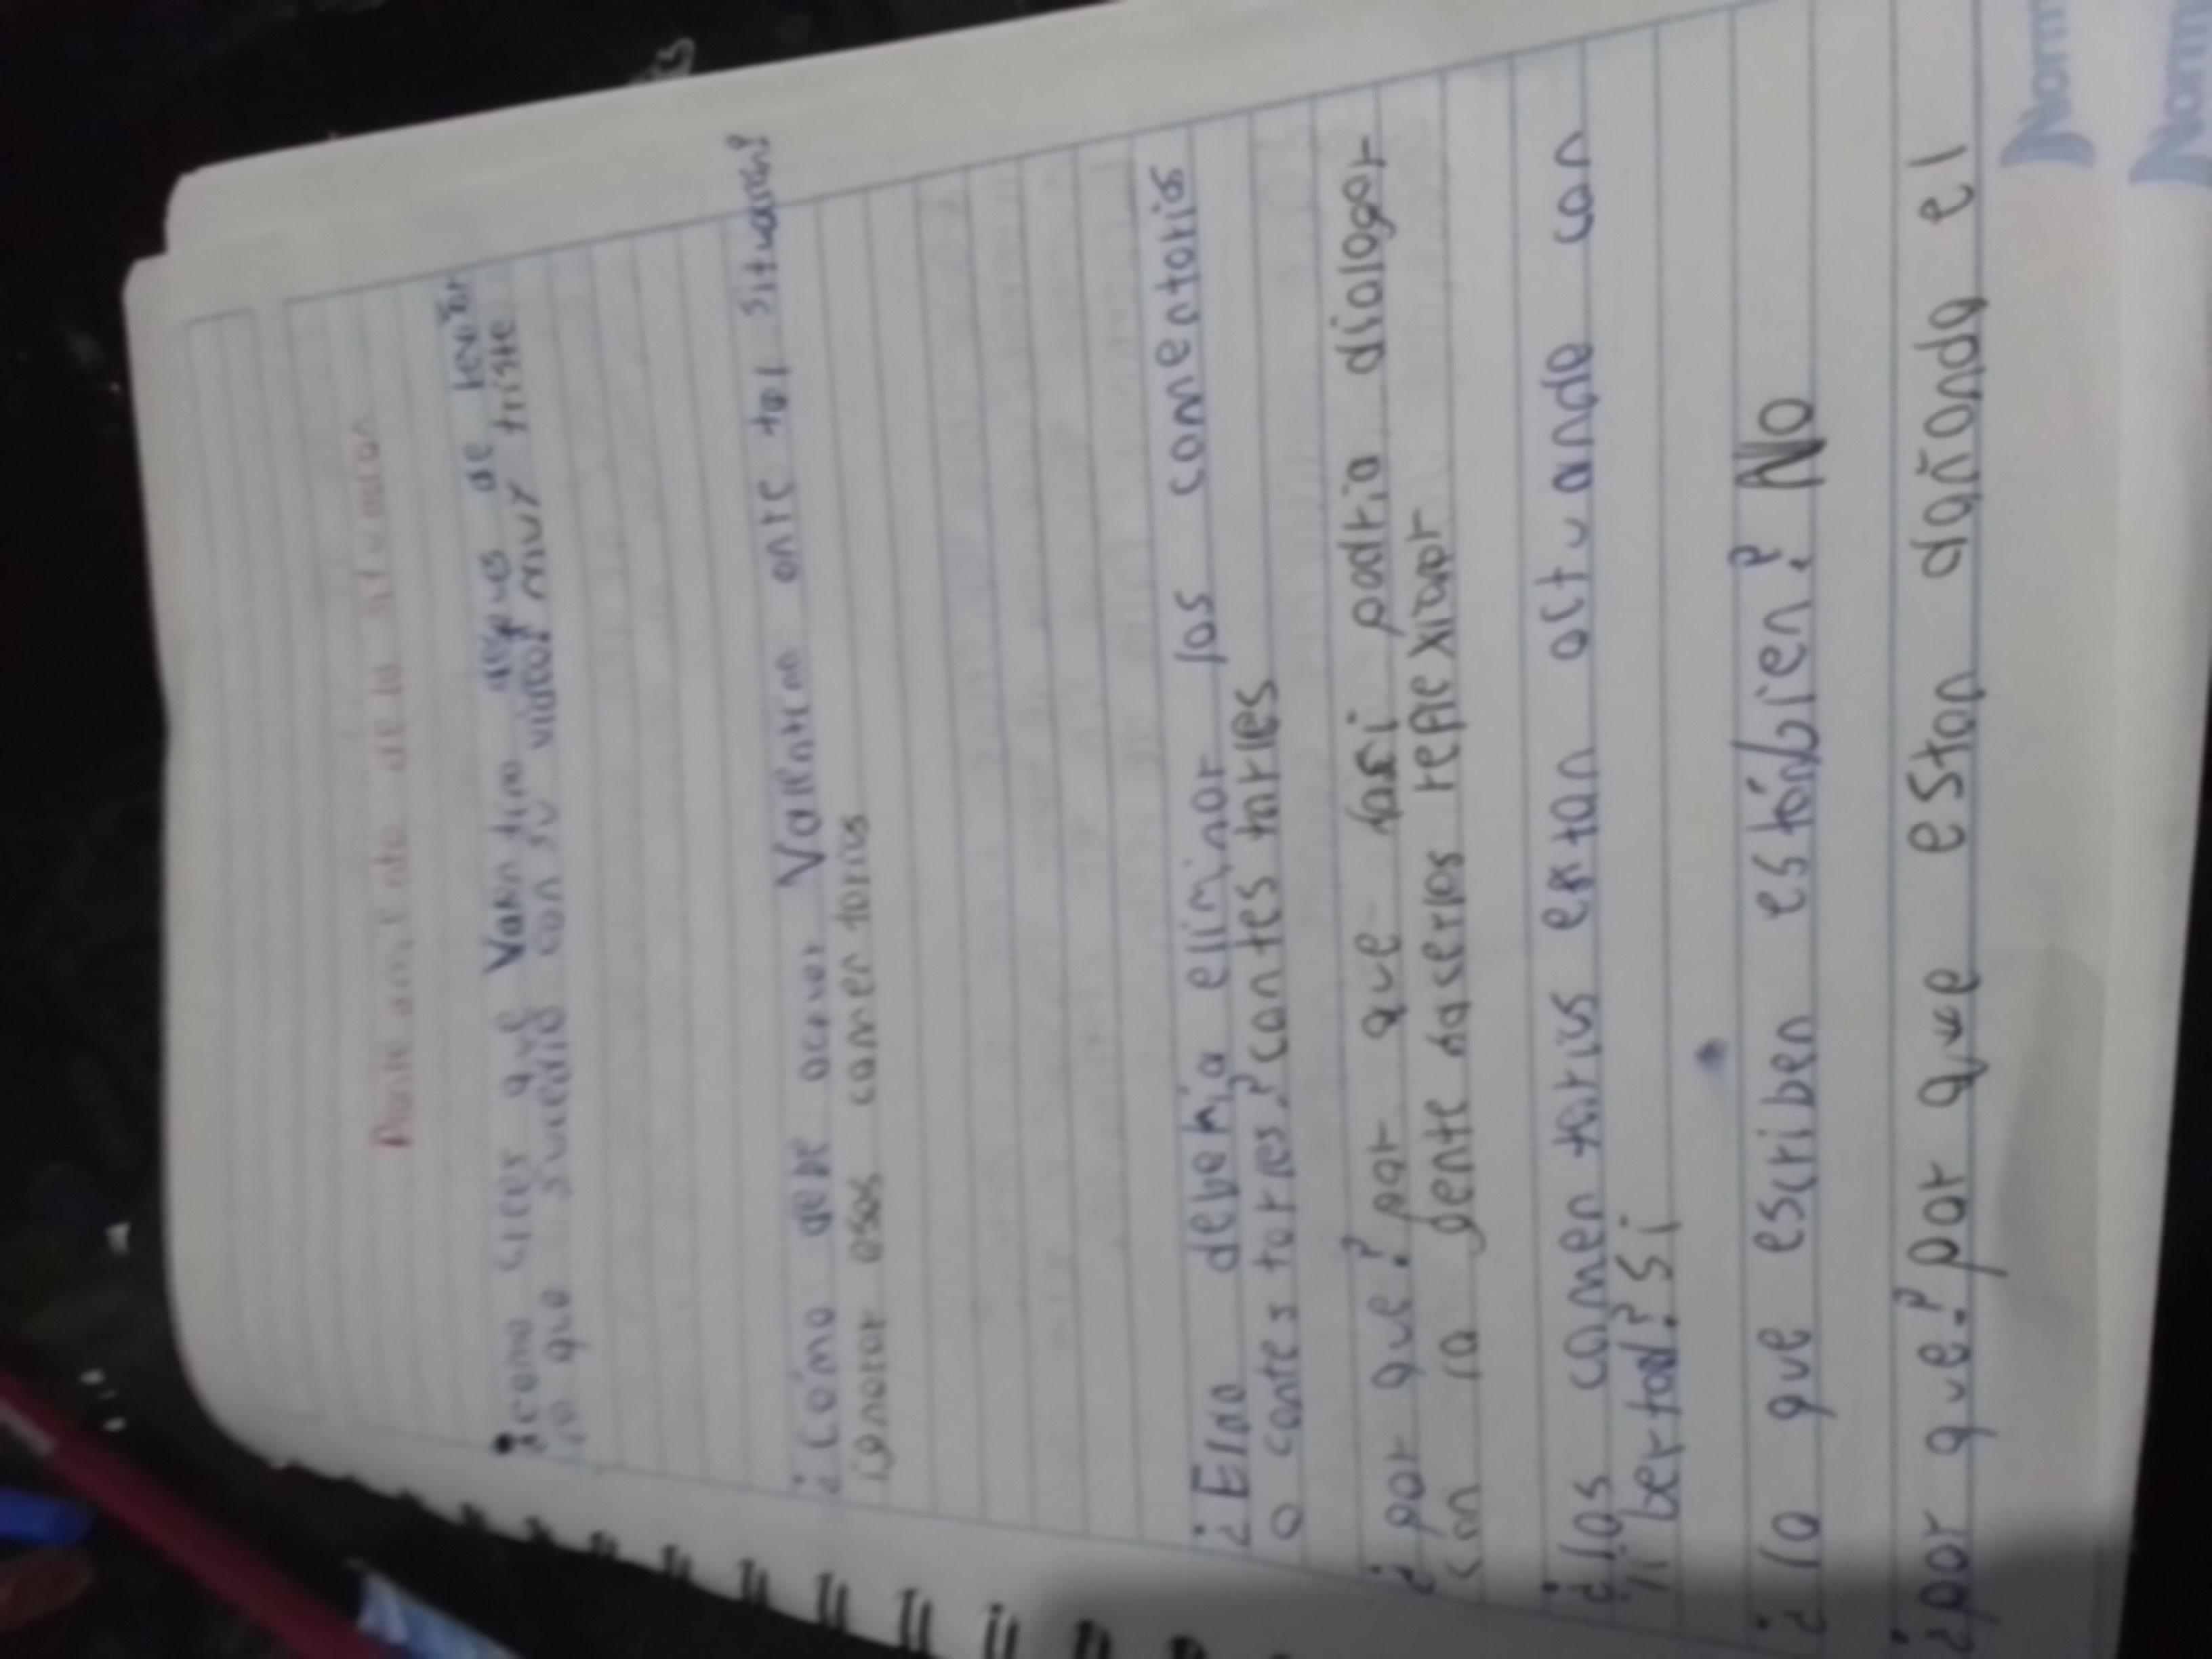 Planteamiento de la situacion
¿como crees que Valentina despues de revisar
lo que sucedio con su video? muy triste
¿Cómo debe actuar Valentina ante tal situacion?
ignorar esos comentorios
¿Ella deberia eliminar los comentorios
o contestorres? contestorles
¿por que? por que así podria dialogar
con la gente haserlos reflexionar
¿los comentarios estan actuando con
libertad? Si
¿lo que escriben está bien? No
¿por que? por que estan dañando el
Norm
Norm